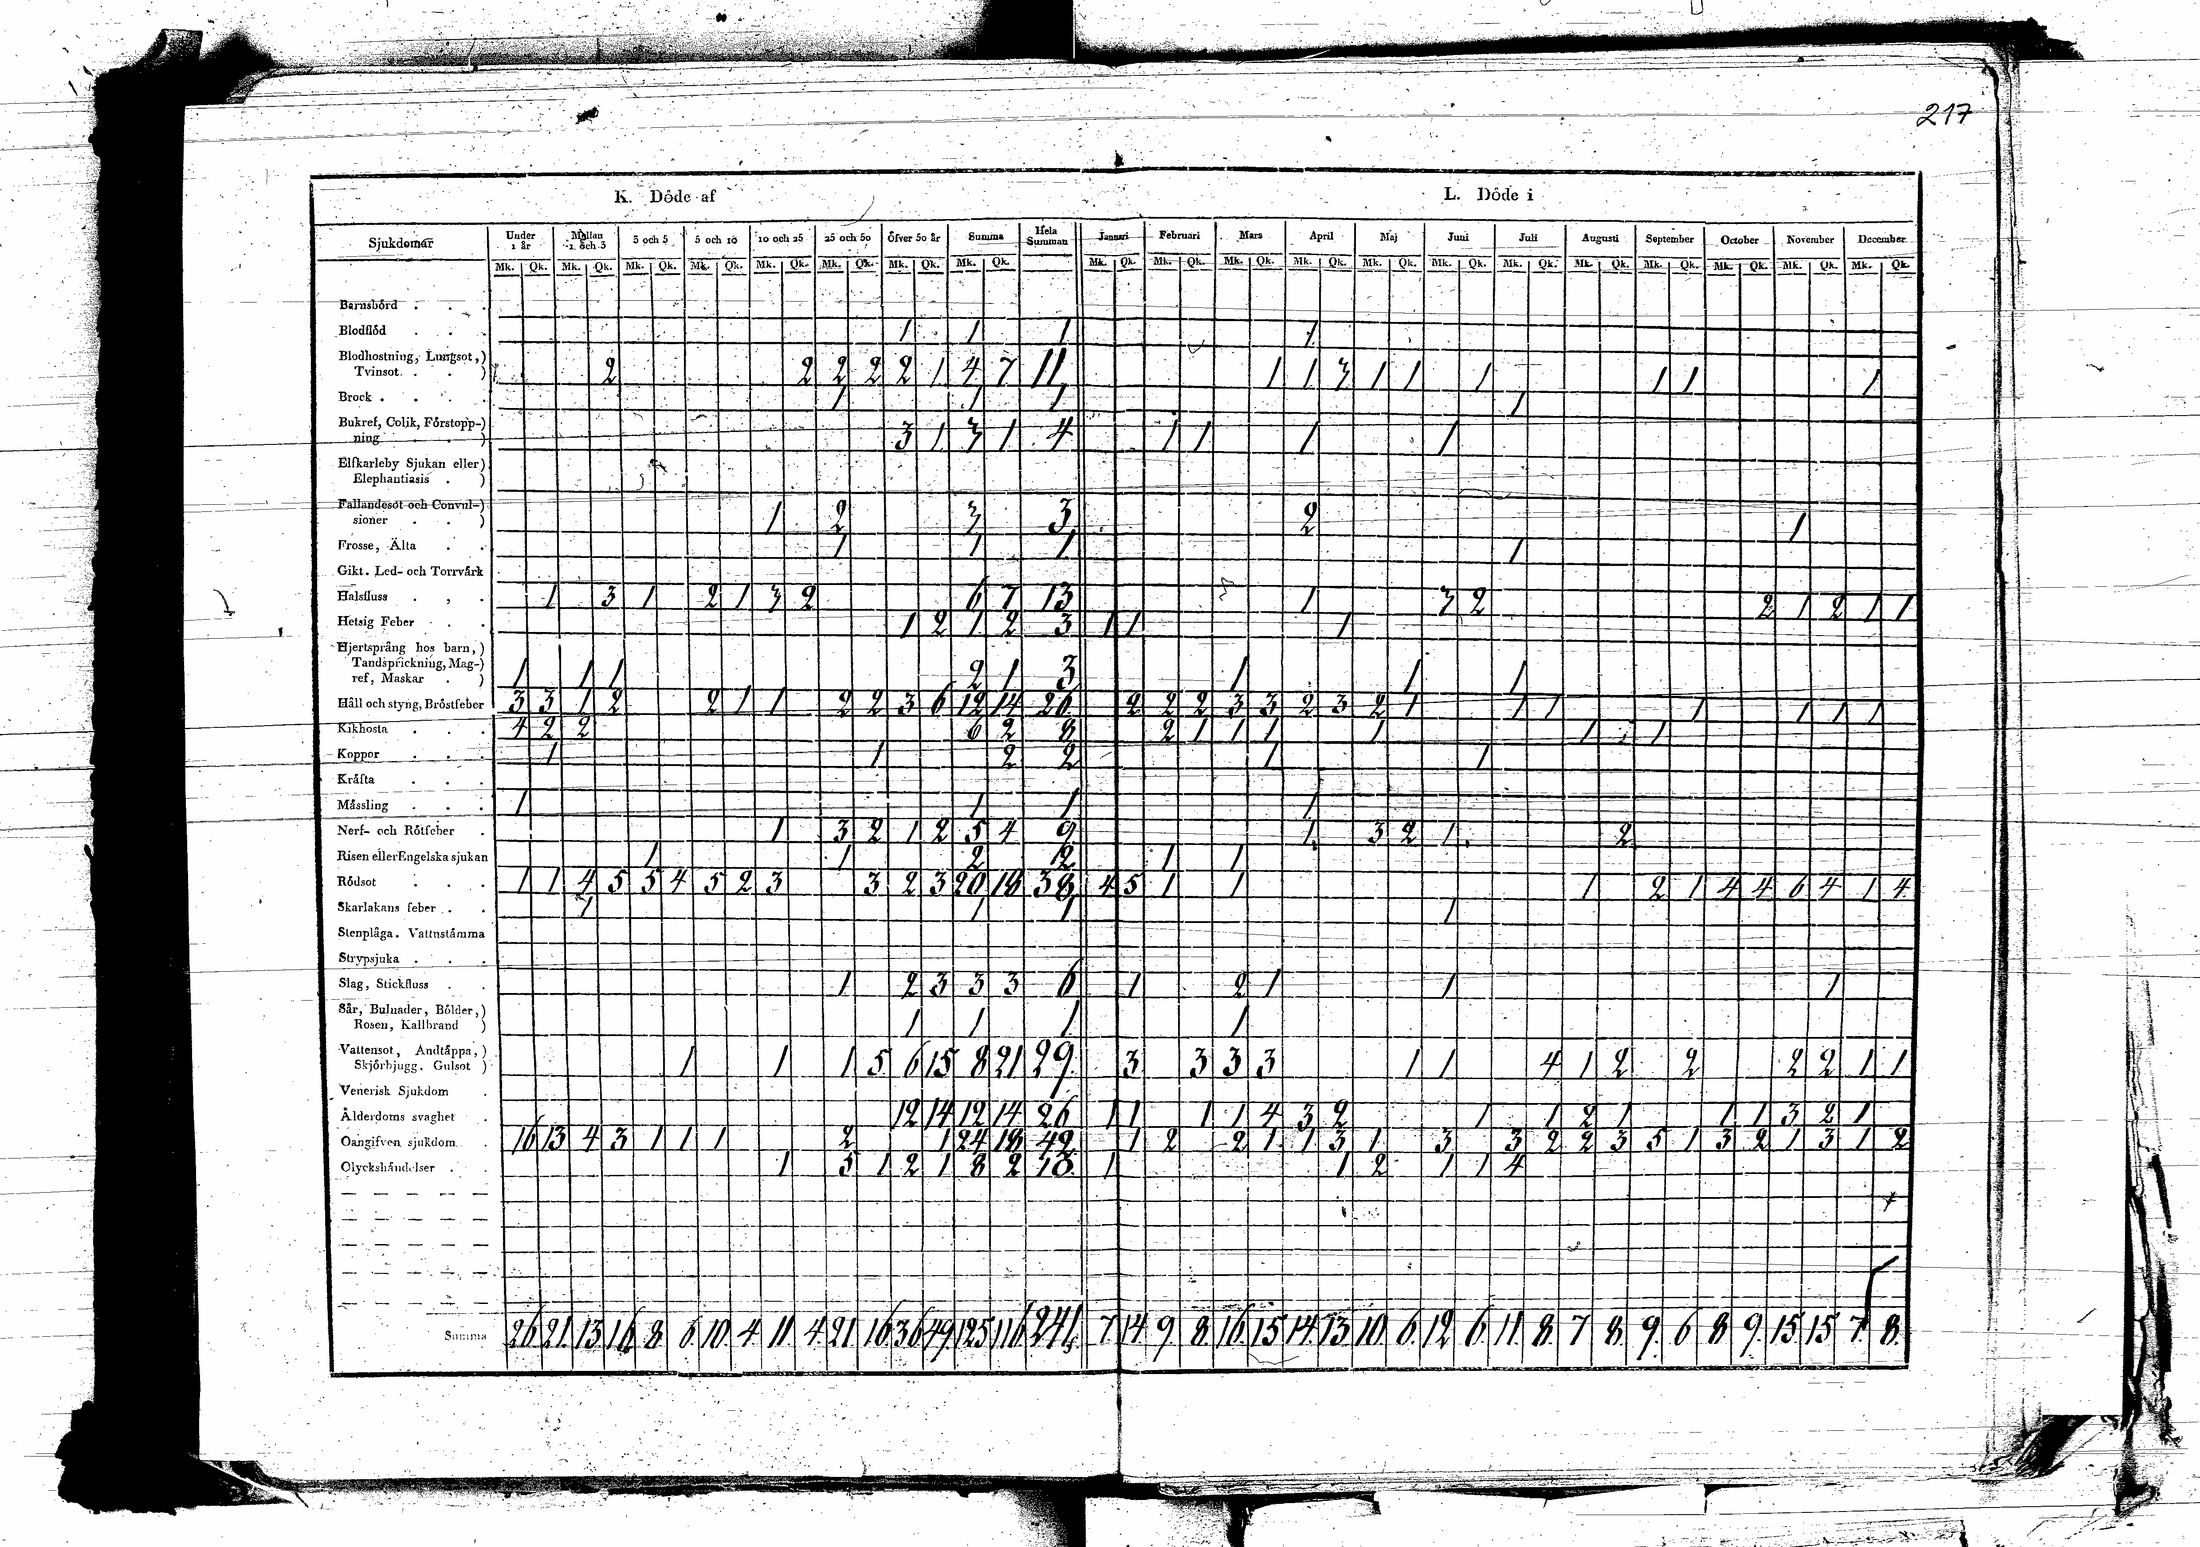 217
K. Döde af L. Döde i
Sjukdomar Under 1 år Mellan 1 och 3 3 och 5 5 och 10 10 och 25 25 och 50 Öfver 50 år Summa Hela Summan Januari Februari Mars April Maj Juni Juli Augusti September October November December
Mk. Qk. Mk. Qk. Mk. Qk. Mk. Qk. Mk. Qk. Mk. Qk. Mk. Qk. Mk. Qk. Mk. Qk. Mk. Qk. Mk. Qk. Mk. Qk. Mk. Qk. Mk. Qk. Mk. Qk. Mk. Qk. Mk. Qk. Mk. Qk. Mk. Qk. Mk. Qk.
Barnsbörd . . .
Blodflöd . . . 1 1 1 1
Blodhostning, Lungsot,)
Tvinsot . . ) 2 2 2 2 2 1 4 7 11 1 1 3 1 1 1 1 1 1
Brock . . . . 1 1 1 1
Bukref, Colik, Förstopp-)
ning . . . ) 3 1 3 1 4 1 1 1 1
Elfkarleby Sjukan eller)
Elephantiasis . )
Fallandesot och Convul-)
sioner . . ) 1 2 3 3 2 1
Frosse, Älta . . 1 1 1 1
Gikt. Led- och Torrvärk
Halsfluss . , . 1 3 1 2 1 3 2 6 7 13 1 3 2 2 1 2 1 1
Hetsig Feber . . 1 2 1 2 3 1 1 1
Hjertsprång hos barn,)
Tandsprickning, Mag-)
ref, Maskar . ) 1 1 1 2 1 3 1 1 1
Håll och styng, Bröstfeber 3 3 1 2 2 1 1 2 2 3 6 12 14 26 2 2 2 3 3 2 3 2 1 1 1 1 1 1 1
Kikhosta . . . 4 2 2 6 2 8 2 1 1 1 1 1 1
Koppor . . . 1 1 2 2 1 1
Kräfta . . .
Mässling . . . 1 1 1 1
Nerf- och Rötfeber . 1 3 2 1 2 5 4 9 1 3 2 1 2
Risen eller Engelska sjukan 1 1 2 2 1 1
Rödsot . . . 1 1 4 5 5 4 5 2 3 3 2 3 20 18 38 4 5 1 1 1 2 1 4 4 6 4 1 4
Skarlakans feber . . 1 1 1 1
Stenplåga. Vattnstämma
Strypsjuka . . .
Slag, Stickfluss . . 1 2 3 3 3 6 1 2 1 1 1
Sår, Bulnader, Bölder,)
Rosen, Kallbrand ) 1 1 1 1
Vattensot, Andtäppa,)
Skjörbjugg. Gulsot ) 1 1 1 5 6 15 8 21 29 3 3 3 3 1 1 4 1 2 2 2 2 1 1
Venerisk Sjukdom .
Ålderdoms svaghet . 12 14 12 14 26 1 1 1 1 4 3 2 1 1 2 1 1 1 3 2 1
Oangifven sjukdom . 16 13 4 3 1 1 1 2 1 24 18 42 1 2 2 1 1 3 1 3 3 2 2 3 5 1 3 2 1 3 1 2
Olyckshändelser . . 1 5 1 2 1 8 2 10 1 1 2 1 1 4
Summa 26 21 13 16 8 6 10 4 11 4 21 16 36 49 125 116 241 7 14 9 8 16 15 14 13 10 6 12 6 11 8 7 8 9 6 8 9 15 15 7 8